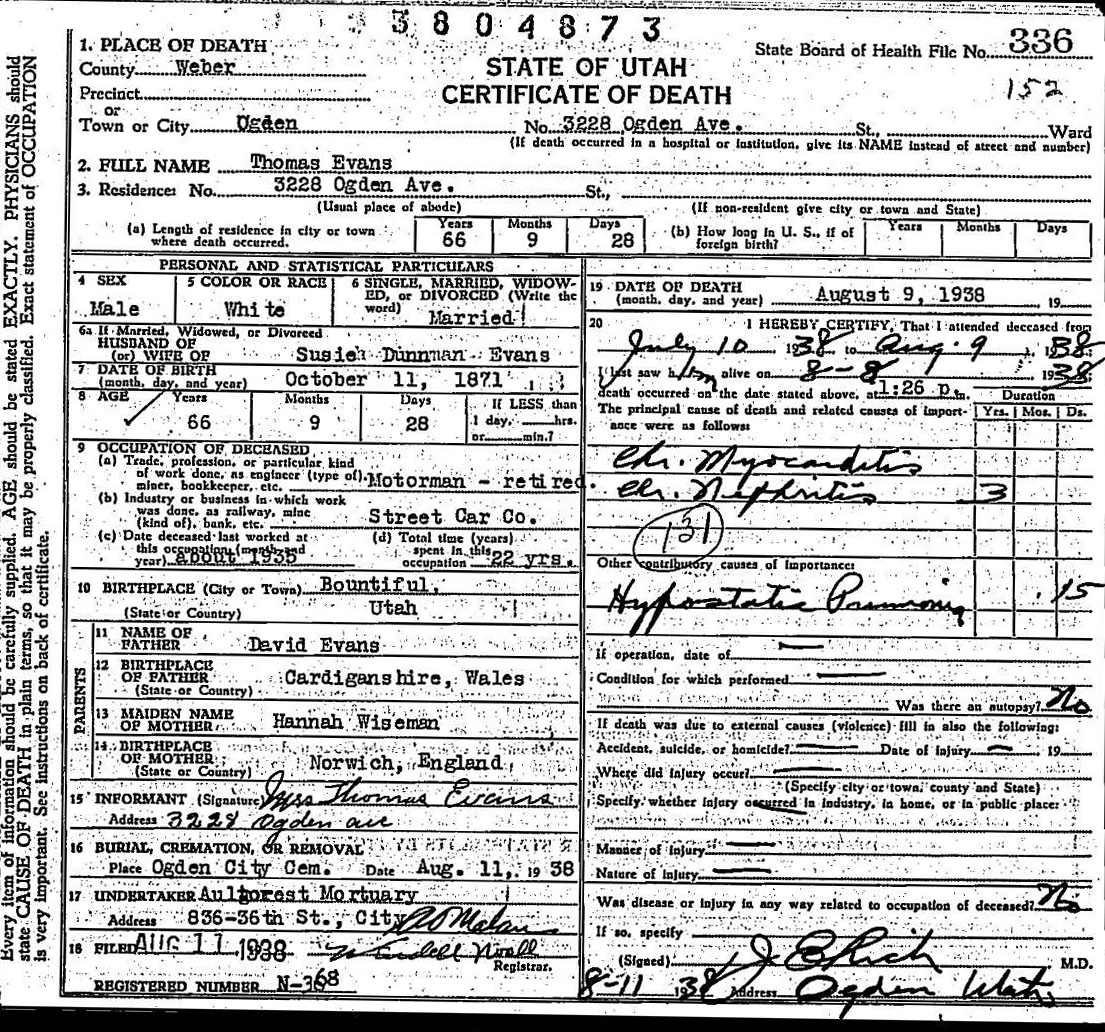 3 8 0 4 8 7 3
State Board of Health File No. 336
152
1. PLACE OF DEATH
County Weber
STATE OF UTAH
CERTIFICATE OF DEATH
Precinct
or
Town or City Ogden No. 3228 Ogden Ave. St., Ward
(If death occurred in a hospital or institution, give its NAME instead of street and number)
2. FULL NAME Thomas Evans
3. Residence: No. 3228 Ogden Ave. St.,
(Usual place of abode) (If non-resident give city or town and State)
(a) Length of residence in city or town where death occurred. Years 66 Months 9 Days 28
(b) How long in U. S., if of foreign birth? Years Months Days
PERSONAL AND STATISTICAL PARTICULARS
4 SEX Male
5 COLOR OR RACE White
6 SINGLE, MARRIED, WIDOW-
ED, or DIVORCED (Write the
word) Married
6a If Married, Widowed, or Divorced
HUSBAND OF
(or) WIFE OF Susie Dunnman Evans
7 DATE OF BIRTH
(month, day, and year) October 11, 1871
8 AGE Years Months Days If LESS than
66 9 28 1 day, hrs.
or min.?
9 OCCUPATION OF DECEASED
(a) Trade, profession, or particular kind
of work done, as engineer (type of)
miner, bookkeeper, etc. Motorman - retired.
(b) Industry or business in which work
was done, as railway, mine
(kind of), bank, etc. Street Car Co.
(c) Date deceased last worked at
this occupation (month and
year) about 1935
(d) Total time (years)
spent in this
occupation 22 yrs.
10 BIRTHPLACE (City or Town) Bountiful,
(State or Country) Utah
PARENTS
11 NAME OF
FATHER David Evans
12 BIRTHPLACE
OF FATHER Cardiganshire, Wales
(State or Country)
13 MAIDEN NAME
OF MOTHER Hannah Wiseman
14 BIRTHPLACE
OF MOTHER Norwich, England
(State or Country)
15 INFORMANT (Signature) Mrs Thomas Evans
Address 3228 Ogden ave
16 BURIAL, CREMATION, OR REMOVAL
Place Ogden City Cem. Date Aug. 11, 1938
17 UNDERTAKER Aultorest Mortuary
Address 836-36th St., City
18 FILED AUG 11 1938 Wendell Noall
Registrar.
REGISTERED NUMBER N-368
19 DATE OF DEATH
(month, day, and year) August 9, 1938 19
20 I HEREBY CERTIFY, That I attended deceased from
July 10 1938 to Aug. 9, 1938
I last saw him alive on 8-8 1938
death occurred on the date stated above, at 1:26 p. m.
The principal cause of death and related causes of import-
ance were as follows:
Duration
Yrs. Mos. Ds.
Chr. Myocarditis
Chr. Nephritis 3
131
Other contributory causes of importance:
Hypostatic Pneumonia 15
If operation, date of
Condition for which performed
Was there an autopsy? No
If death was due to external causes (violence) fill in also the following:
Accident, suicide, or homicide? Date of Injury 19
Where did injury occur?
(Specify city or town, county and State)
Specify whether injury occurred in industry, in home, or in public place:
Manner of injury
Nature of injury
Was disease or injury in any way related to occupation of deceased? No
If so, specify
(Signed) J E Rich M.D.
8-11 1938 Address Ogden Utah
Every item of information should be carefully supplied. AGE should be stated EXACTLY. PHYSICIANS should
state CAUSE OF DEATH in plain terms, so that it may be properly classified. Exact statement of OCCUPATION
is very important. See instructions on back of certificate.